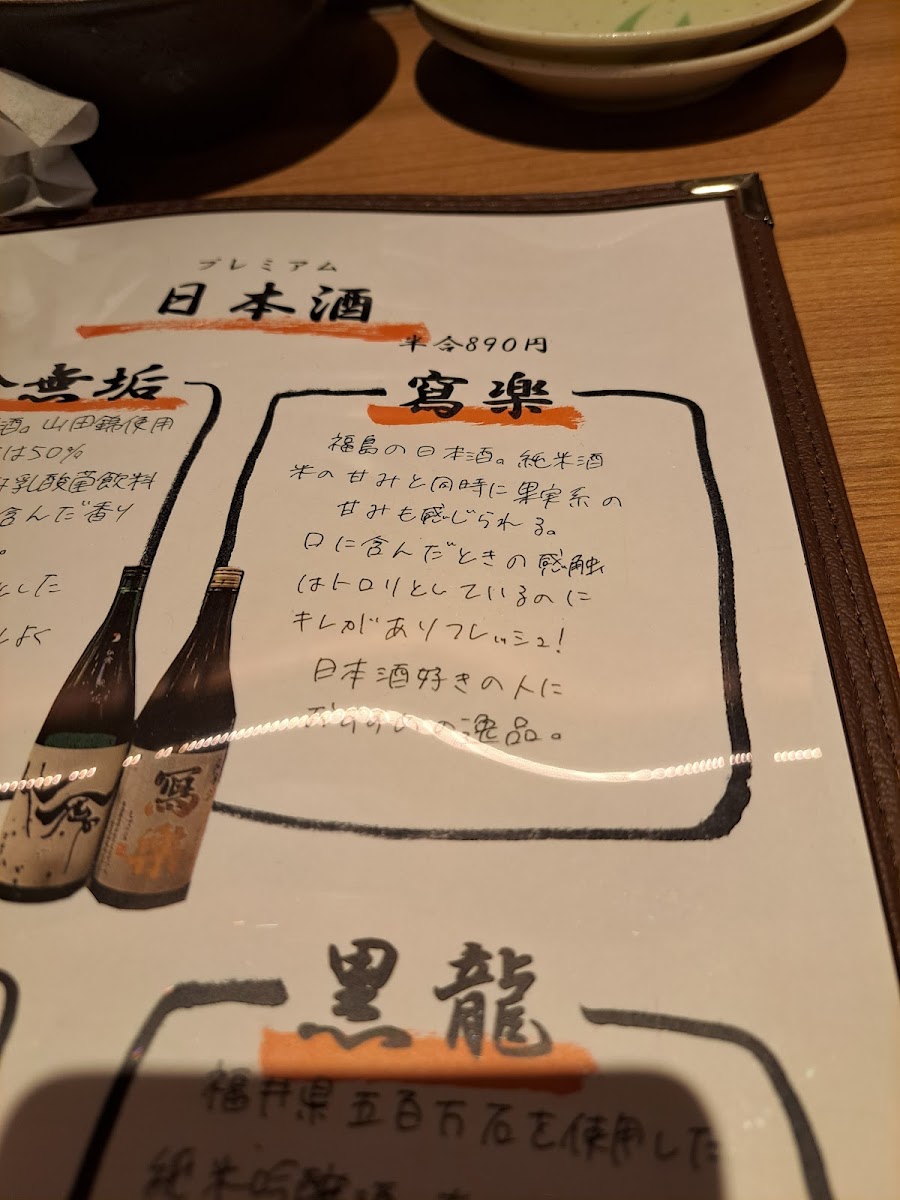 プレミアム
日本酒
半合890円
無垢
酒。山田錦使用
は50%
乳酸菌飲料
含んだ香り
。
とした
しよく
寫楽
福島の日本酒。純米酒
米の甘みと同時に果実系の
甘みも感じられる。
口に含んだときの感触
はトロリとしているのに
キレがありフレッシュ!
日本酒好きの人に
おすすめの逸品。
寫楽
黒龍
福井県五百万石を使用した
純米吟醸酒